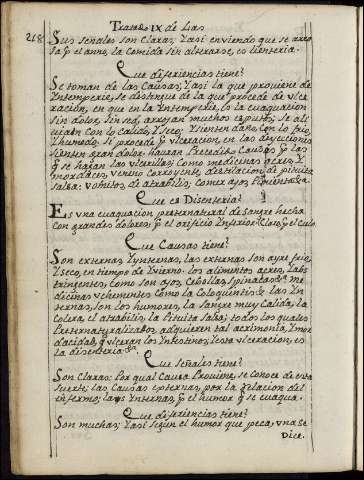 Tratado IX de Las
218
Sus señales son claras, Yasi en viendo que se arro
la p̃ el anno, la comida sin alterarse, es lienteria.
Que diferiencias tiene?
Se toman de las Causas, Yasi la que proviene de
Yntemperie, se destingue de la que procede de ulce
racion, en que en la Yntemperie, es la euaquacion
sin dolor, sin sed, arrojan muchos esputos, se ali
uiaen con lo calido, Yseco: Ysienten daño, con lo frio,
Yhumedo: Si procede p̃ ulceracion, en las deyecciones
sienten gran dolor, hauran Precedito Causas p̃ las
q̃ se hazan las ulcerillas; como medicinas acres, Y
mordaces, veneno corrosyente, destilacion de pituita
salsa: vomitos, de atrabilis; comer ajos, Pimienta &a.
Que es Disenteria?
Es vna euaquacion preternatural de sangre hecha
con grandes dolores, p̃ el orificio Ynferior: Claro, p̃ el culo.
Que Causas tiene?
Son externas, Ynternas, las externas son ayre frio,
Yseco, en tiempo de Yvierno: los alimentos acres, Yabs
tringentes, como son ajos, Cebollas, espinacas &a me
decinas vehementes como la Coloquintis &a las Yn
ternas, son los humores, la sangre muy Calida, la
colera, el atrabilis, la Pituita salsa; todos los quales
Preternaturalizados, adquieren tal acrimonia, Ymor
dacidad, q̃ ulceran los Yntestinos; Yesta ulceracion, es
la disenteria &a.
Que señales tiene?
Son Claras: Por qual Causa Prouiene, se conoce de esta
suerte; las Causas externas, por la relacion del
enfermo; las Ynternas, p̃ el humor q̃ se euaqua.
Que diferiencias tiene?
Son muchas; Yasi segun el humor que peca, vna se
Dice.